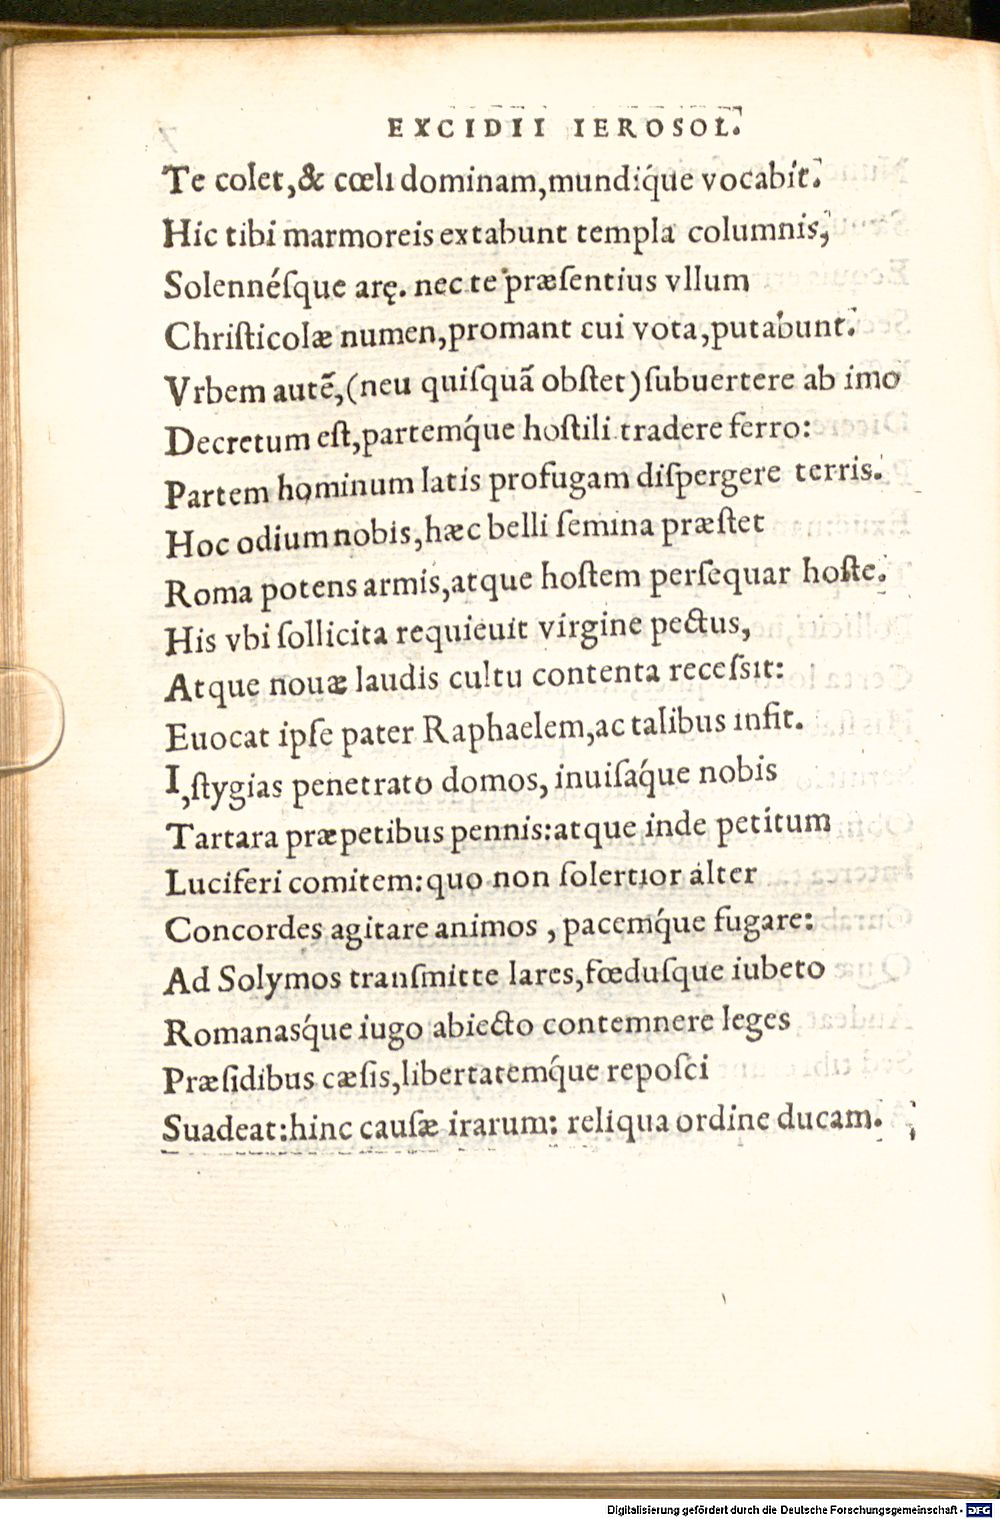 EXCIDII IEROSOL.
Te colet,& cœli dominam,mundíq́ue vocabit.
Hic tibi marmoreis extabunt templa columnis,
Solennésque arę. nec te præſentius vllum
Chriſticolæ numen,promant cui vota,putabunt.
Vrbem autē,(neu quiſquā obſtet)ſubuertere ab imo
Decretum eſt,partemq́ue hoſtili tradere ferro:
Partem hominum latis profugam diſpergere terris.
Hoc odium nobis,hæc belli ſemina præſtet
Roma potens armis,atque hoſtem perſequar hoſte.
His vbi ſollicita requieuit virgine pectus,
Atque nouæ laudis cultu contenta receſsit:
Euocat ipſe pater Raphaelem,ac talibus infit.
I,ſtygias penetrato domos, inuiſaq́ue nobis
Tartara præpetibus pennis:atque inde petitum
Luciferi comitem:quo non ſolertior alter
Concordes agitare animos , pacemq́ue fugare:
Ad Solymos tranſmitte lares,fœduſque iubeto
Romanasq́ue iugo abiecto contemnere leges
Præſidibus cæſis,libertatemq́ue repoſci
Suadeat:hinc cauſæ irarum: reliqua ordine ducam.
Digitalisierung gefördert durch die Deutsche Forschungsgemeinschaft - DFG